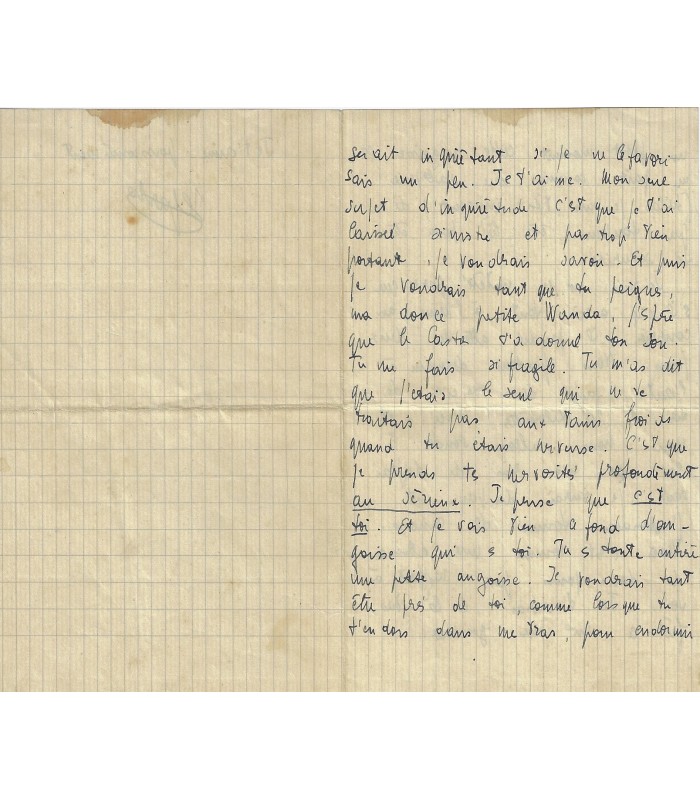 serait inquiétant si je ne le favori
sais un peu. Je t'aime. Mon seul
sujet d'inquiétude c'est que je t'ai
laissé sinistre et pas trop bien
portante. Je voudrais savoir. Et puis
je voudrais tant que tu peignes,
ma douce petite Wanda, j'espère
que le Casta t'a donné ton son.
Tu me fais si fragile. Tu m'as dit
que j'étais le seul qui ne te
traitais pas aux bains froids
quand tu étais nerveuse. C'est que
je prends tes nervosités profondément
au sérieux. Je pense que c'est
toi. Et je vois bien à fond d'an-
goisse qui es toi. Tu es toute entière
une petite angoisse. Je voudrais tant
être près de toi, comme lorsque tu
t'endors dans mes bras, pour endormir